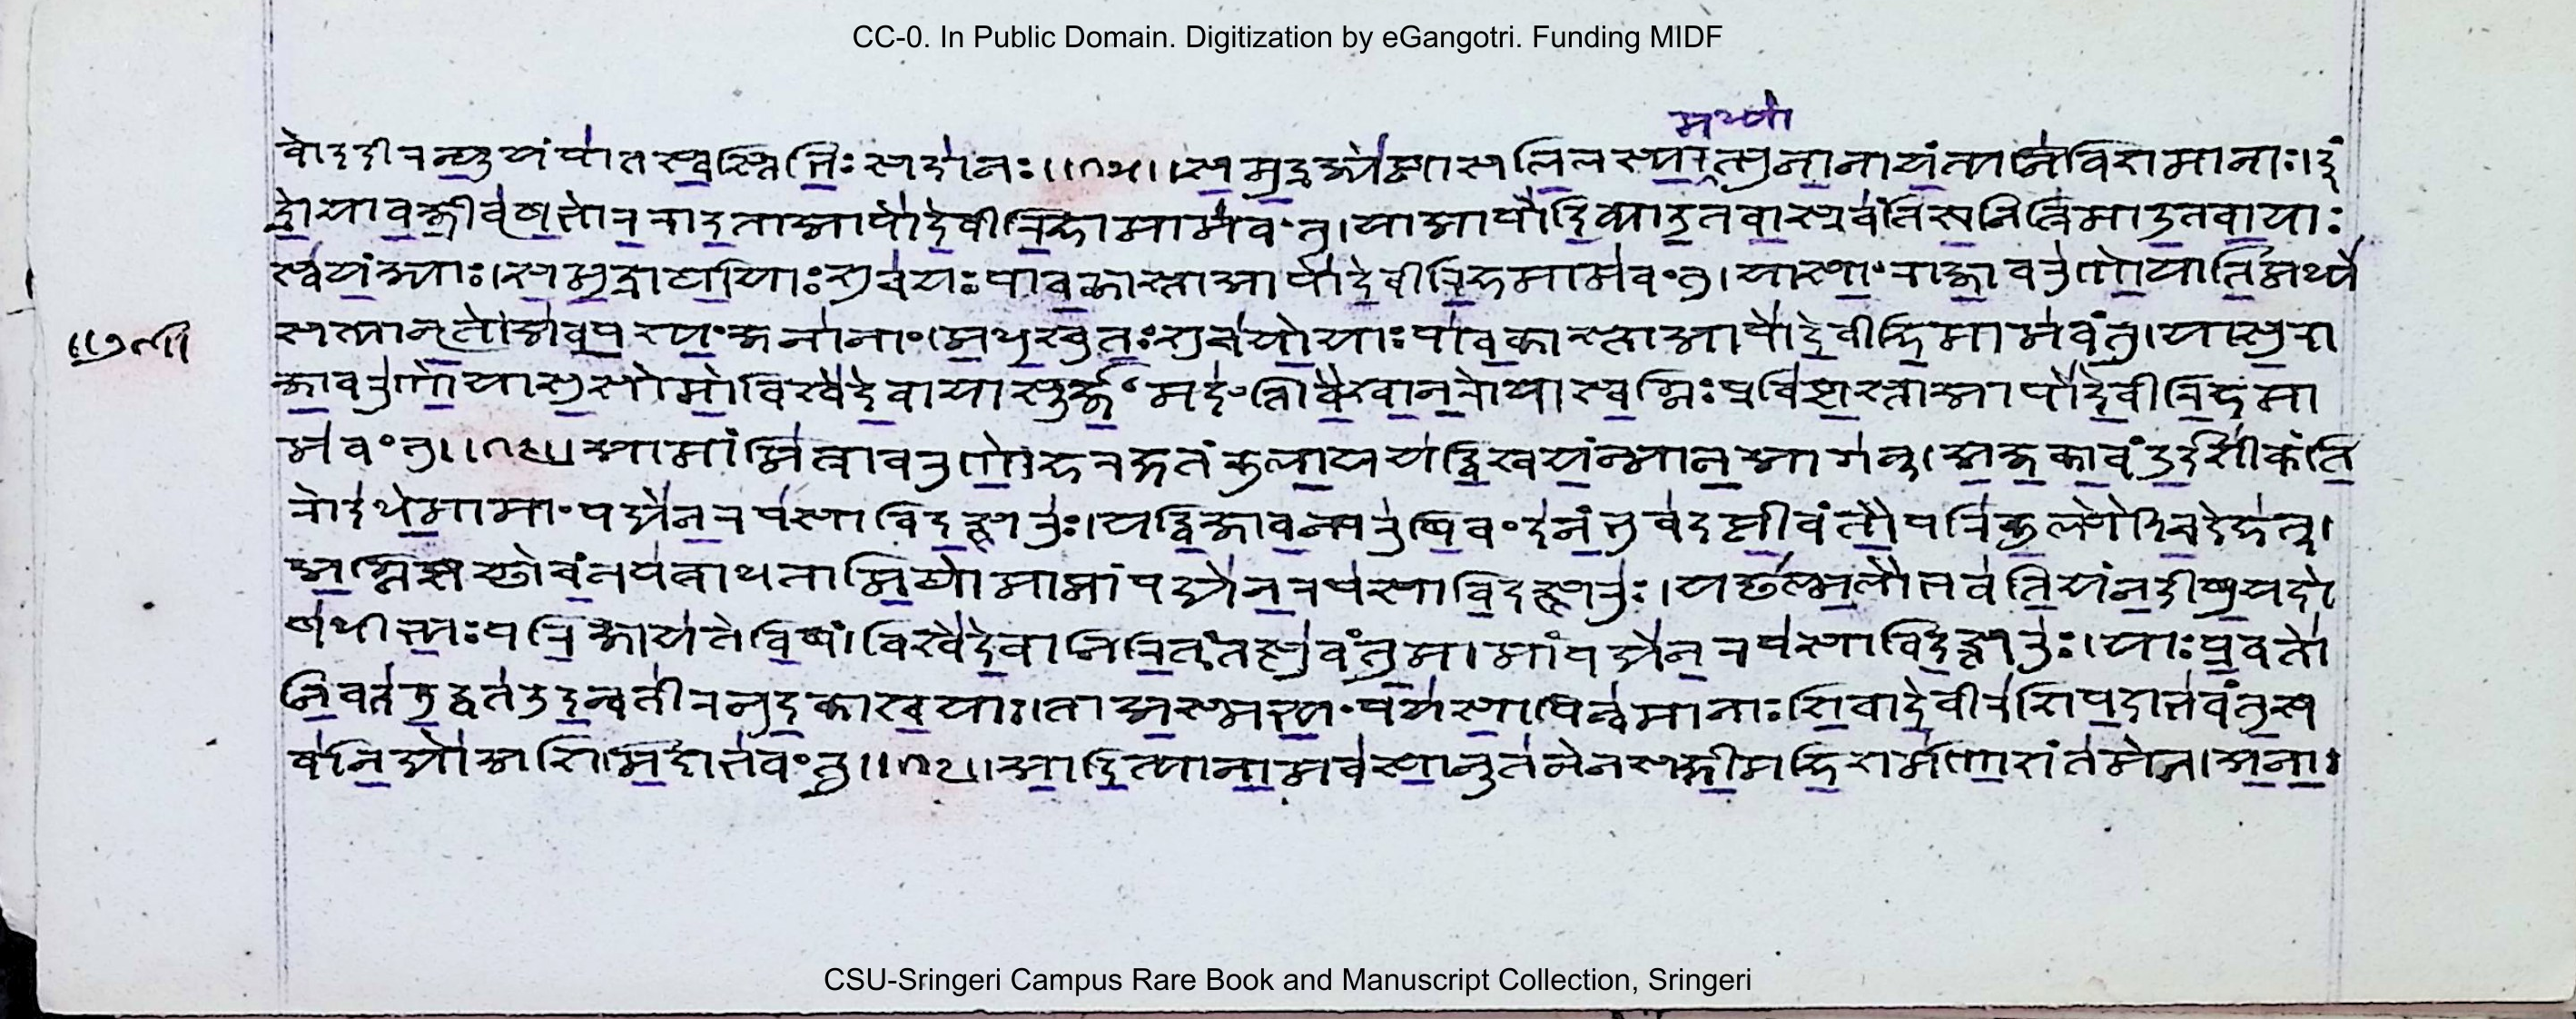 CC-0. In Public Domain. Digitization by eGangotri. Funding MIDF
मध्या
वो ददीरन्यूयं पात स्वस्तिभिः सदा नः ॥१५॥ समुद्रज्येष्ठाः सलिलस्य त्पुनाना यंत्यनिविशमानाः । इं
द्रो या वज्री वृषभो रराद ता आपो देवीरिह मामवंतु । या आपो दिव्या उत वा स्रवंति खनित्रिमा उत वा याः
स्वयंजाः । समुद्रार्था याः शुचयः पावकास्ता आपो देवीरिह मामवंतु । यासां राजा वरुणो याति मध्ये
सत्यानृते अवपश्यं जनानां । मधुश्चुतः शुचयो याः पावकास्ता आपो देवीरिह मामवंतु । यासु रा
जा वरुणो यासु सोमो विश्वे देवा यासूर्जं मदंति । वैश्वानरो यास्वग्निः प्रविष्टस्ता आपो देवीरिह मा
मवंतु ॥१६॥ आ मां मित्रावरुणेह रक्षतं कुलाययद्विश्वयन्मा न आ गन् । अजकावं दुर्दृशीकं ति
रो दधे मा मां पद्येन रपसा विदत्त्सरुः । यद्विजामन्परुषि वंदनं भुवदष्ठीवंतौ परि कुल्फौ च देहत् ।
अग्निष्टच्छोचन्नप बाधतामितो मा मां पद्येन रपसा विदत्त्सरुः । यच्छल्मलौ भवति यन्नदीषु यदो
षधीभ्यः परि जायते विषं । विश्वे देवा निरितस्तत्सुवंतु मा मां पद्येन रपसा विदत्त्सरुः । याः प्रवतो
निवत उद्वत उदन्वतीरनुदकाश्च याः । ता अस्मभ्यं पयसा पिन्वमानाः शिवा देवीरशिपदा भवंतु सर्वा
नद्यो अशिमिदा भवंतु ॥१७॥ आदित्यानामवसा नूतनेन सक्षीमहि शर्मणा शंतमेन । अना
CSU-Sringeri Campus Rare Book and Manuscript Collection, Sringeri